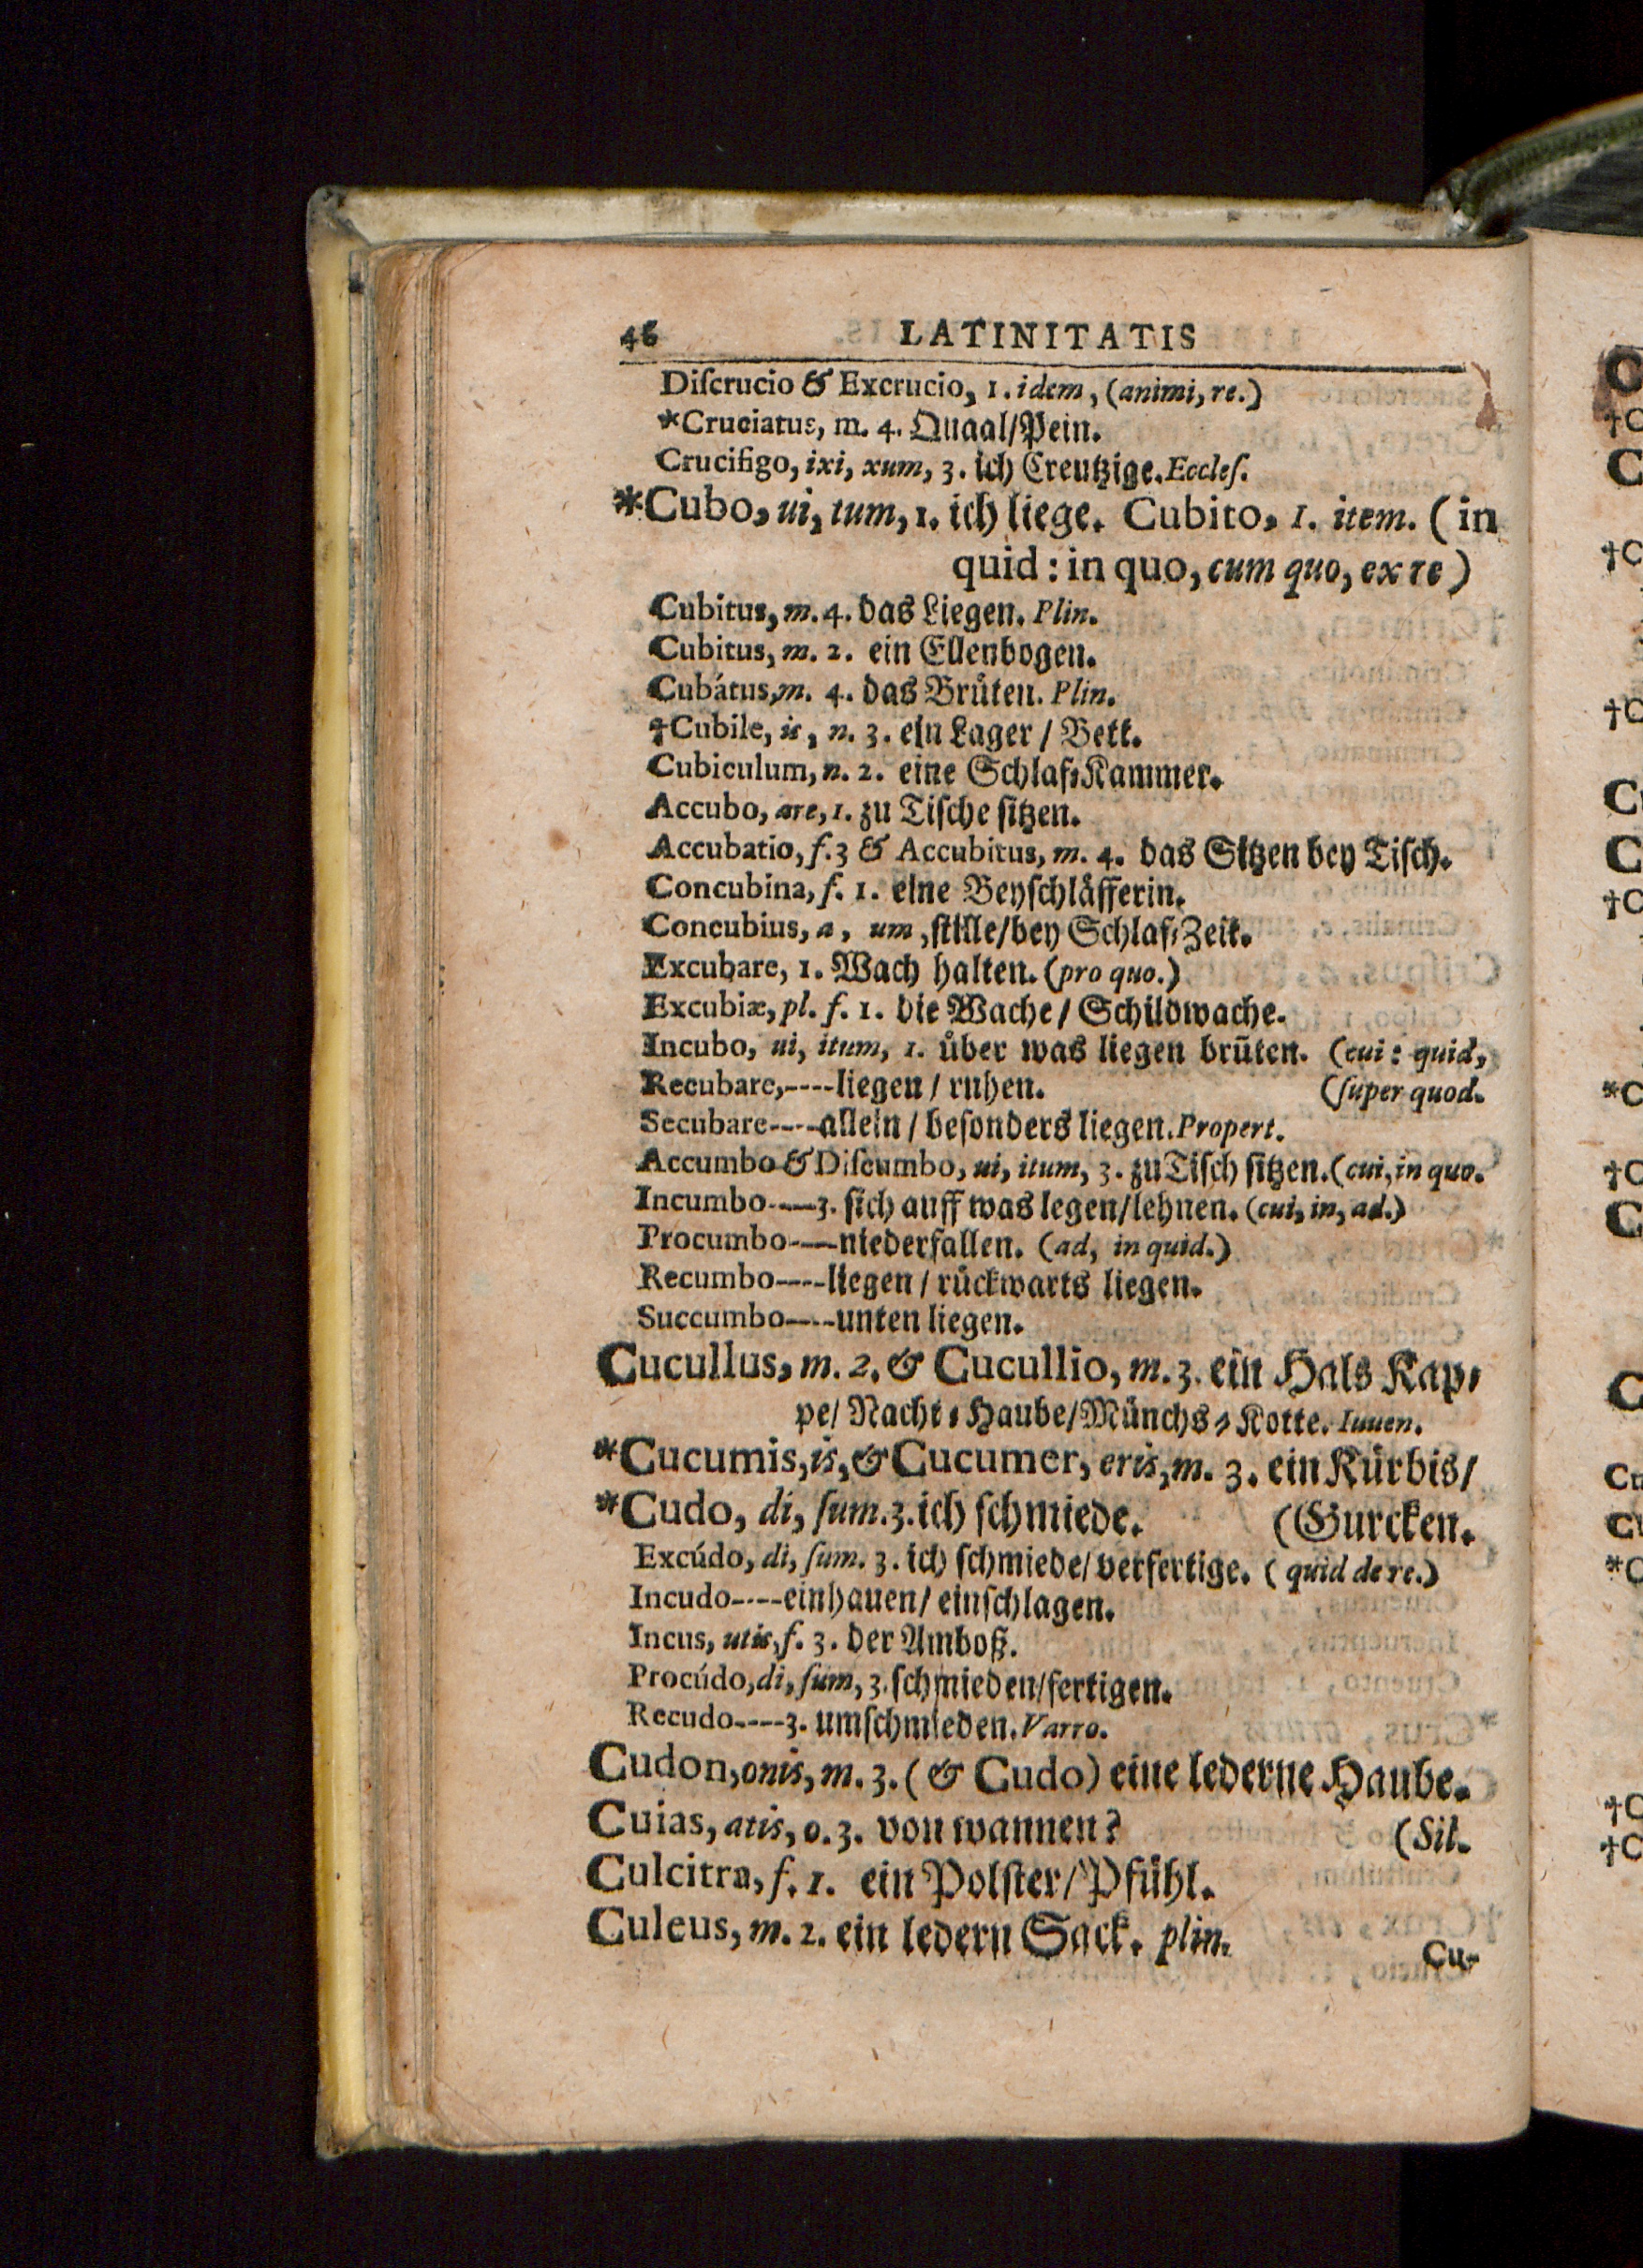 46 LATINITATIS
Diſcrucio & Excrucio, 1. idem, (animi, re.)
*Cruciatus, m. 4. Quaal/Pein.
Crucifigo, ixi, xum, 3. ich Creutzige. Eccleſ.
*Cubo, ui, tum, 1. ich liege. Cubito, 1. item. (in
quid: in quo, cum quo, ex re)
Cubitus, m. 4. das Liegen. Plin.
Cubitus, m. 2. ein Ellenbogen.
Cubátus, m. 4. das Bruͤten. Plin.
†Cubile, is, n. 3. ein Lager / Bett.
Cubiculum, n. 2. eine Schlaf⸗Kammer.
Accubo, are, 1. zu Tiſche ſitzen.
Accubatio, f. 3 & Accubitus, m. 4. das Sitzen bey Tiſch.
Concubina, f. 1. eine Beyſchlaͤfferin.
Concubius, a, um, ſtille/bey Schlaf⸗Zeit.
Excubare, 1. Wach halten. (pro quo.)
Excubiæ, pl. f. 1. die Wache / Schildwache.
Incubo, ui, itum, 1. uͤber was liegen bruͤten. (cui: quid,
Recubare,----liegen / ruhen. (ſuper quod.
Secubare----allein / beſonders liegen. Propert.
Accumbo & Diſcumbo, ui, itum, 3. zu Tiſch ſitzen. (cui, in quo.
Incumbo----3. ſich auff was legen/lehnen. (cui, in, ad.)
Procumbo----niederfallen. (ad, in quid.)
Recumbo----liegen / ruͤckwarts liegen.
Succumbo----unten liegen.
Cucullus, m. 2. & Cucullio, m. 3. ein Hals Kap⸗
pe/ Nacht⸗Haube/Muͤnchs⸗Kotte. Iuuen.
*Cucumis, is, & Cucumer, eris, m. 3. ein Kuͤrbis/
*Cudo, di, ſum. 3. ich ſchmiede. (Gurcken.
Excúdo, di, ſum. 3. ich ſchmiede/ verfertige. (quid de re.)
Incudo----einhauen/ einſchlagen.
Incus, utis, f. 3. der Amboß.
Procúdo, di, ſum, 3. ſchmieden/fertigen.
Recudo----3. umſchmieden. Varro.
Cudon, onis, m. 3. (& Cudo) eine lederne Haube.
Cuias, atis, o. 3. von wannen? (Sil.
Culcitra, f. 1. ein Polſter/Pfuͤhl.
Culeus, m. 2. ein ledern Sack. plin.
Cu-